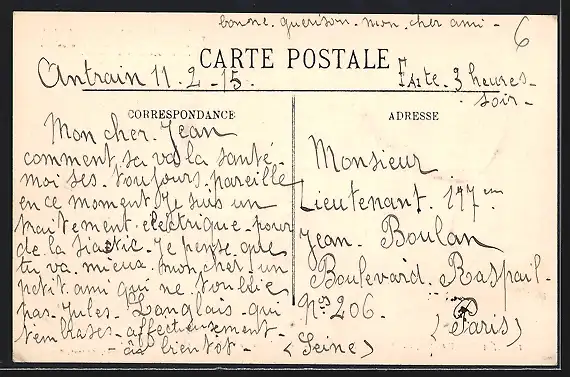 bonne. guerison. mon. cher ami -
6
CARTE POSTALE
Antrain 11. 2 - 15.
Faite. 3 heures -
soir -
CORRESPONDANCE
Mon cher. Jean
comment. sa va. la santé.
moi ses. toujours. pareille
en ce moment. Je suis un
traitement. electrique. pour
de la siatic. Je pense que
tu va. mieux. mon cher. un
petit ami qui ne t'oublie
pas. Jules. Langlais. qui
t'embrases. affectueusement -
- âa bientot -
ADRESSE
Monsieur
Lieutenant. 147
Jean. Boulan
Boulevard. Raspail.
Nos 206.
(Paris)
(Seine)